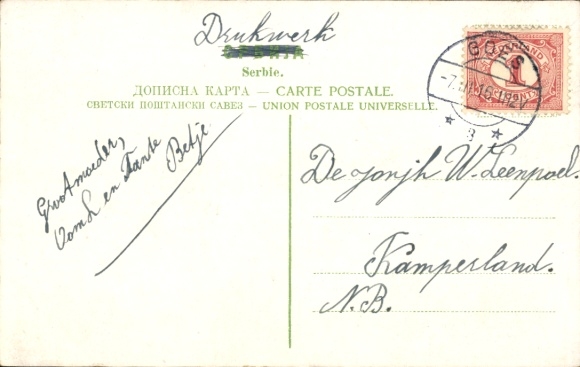 Drukwerk
Serbie.
ДОПИСНА КАРТА — CARTE POSTALE.
СВЕТСКИ ПОШТАНСКИ САВЕЗ — UNION POSTALE UNIVERSELLE.
GOES
1
Grootmoeder,
en Tante Betje
De jonjh W. Leenpoel.
Kamperland.
N.B.